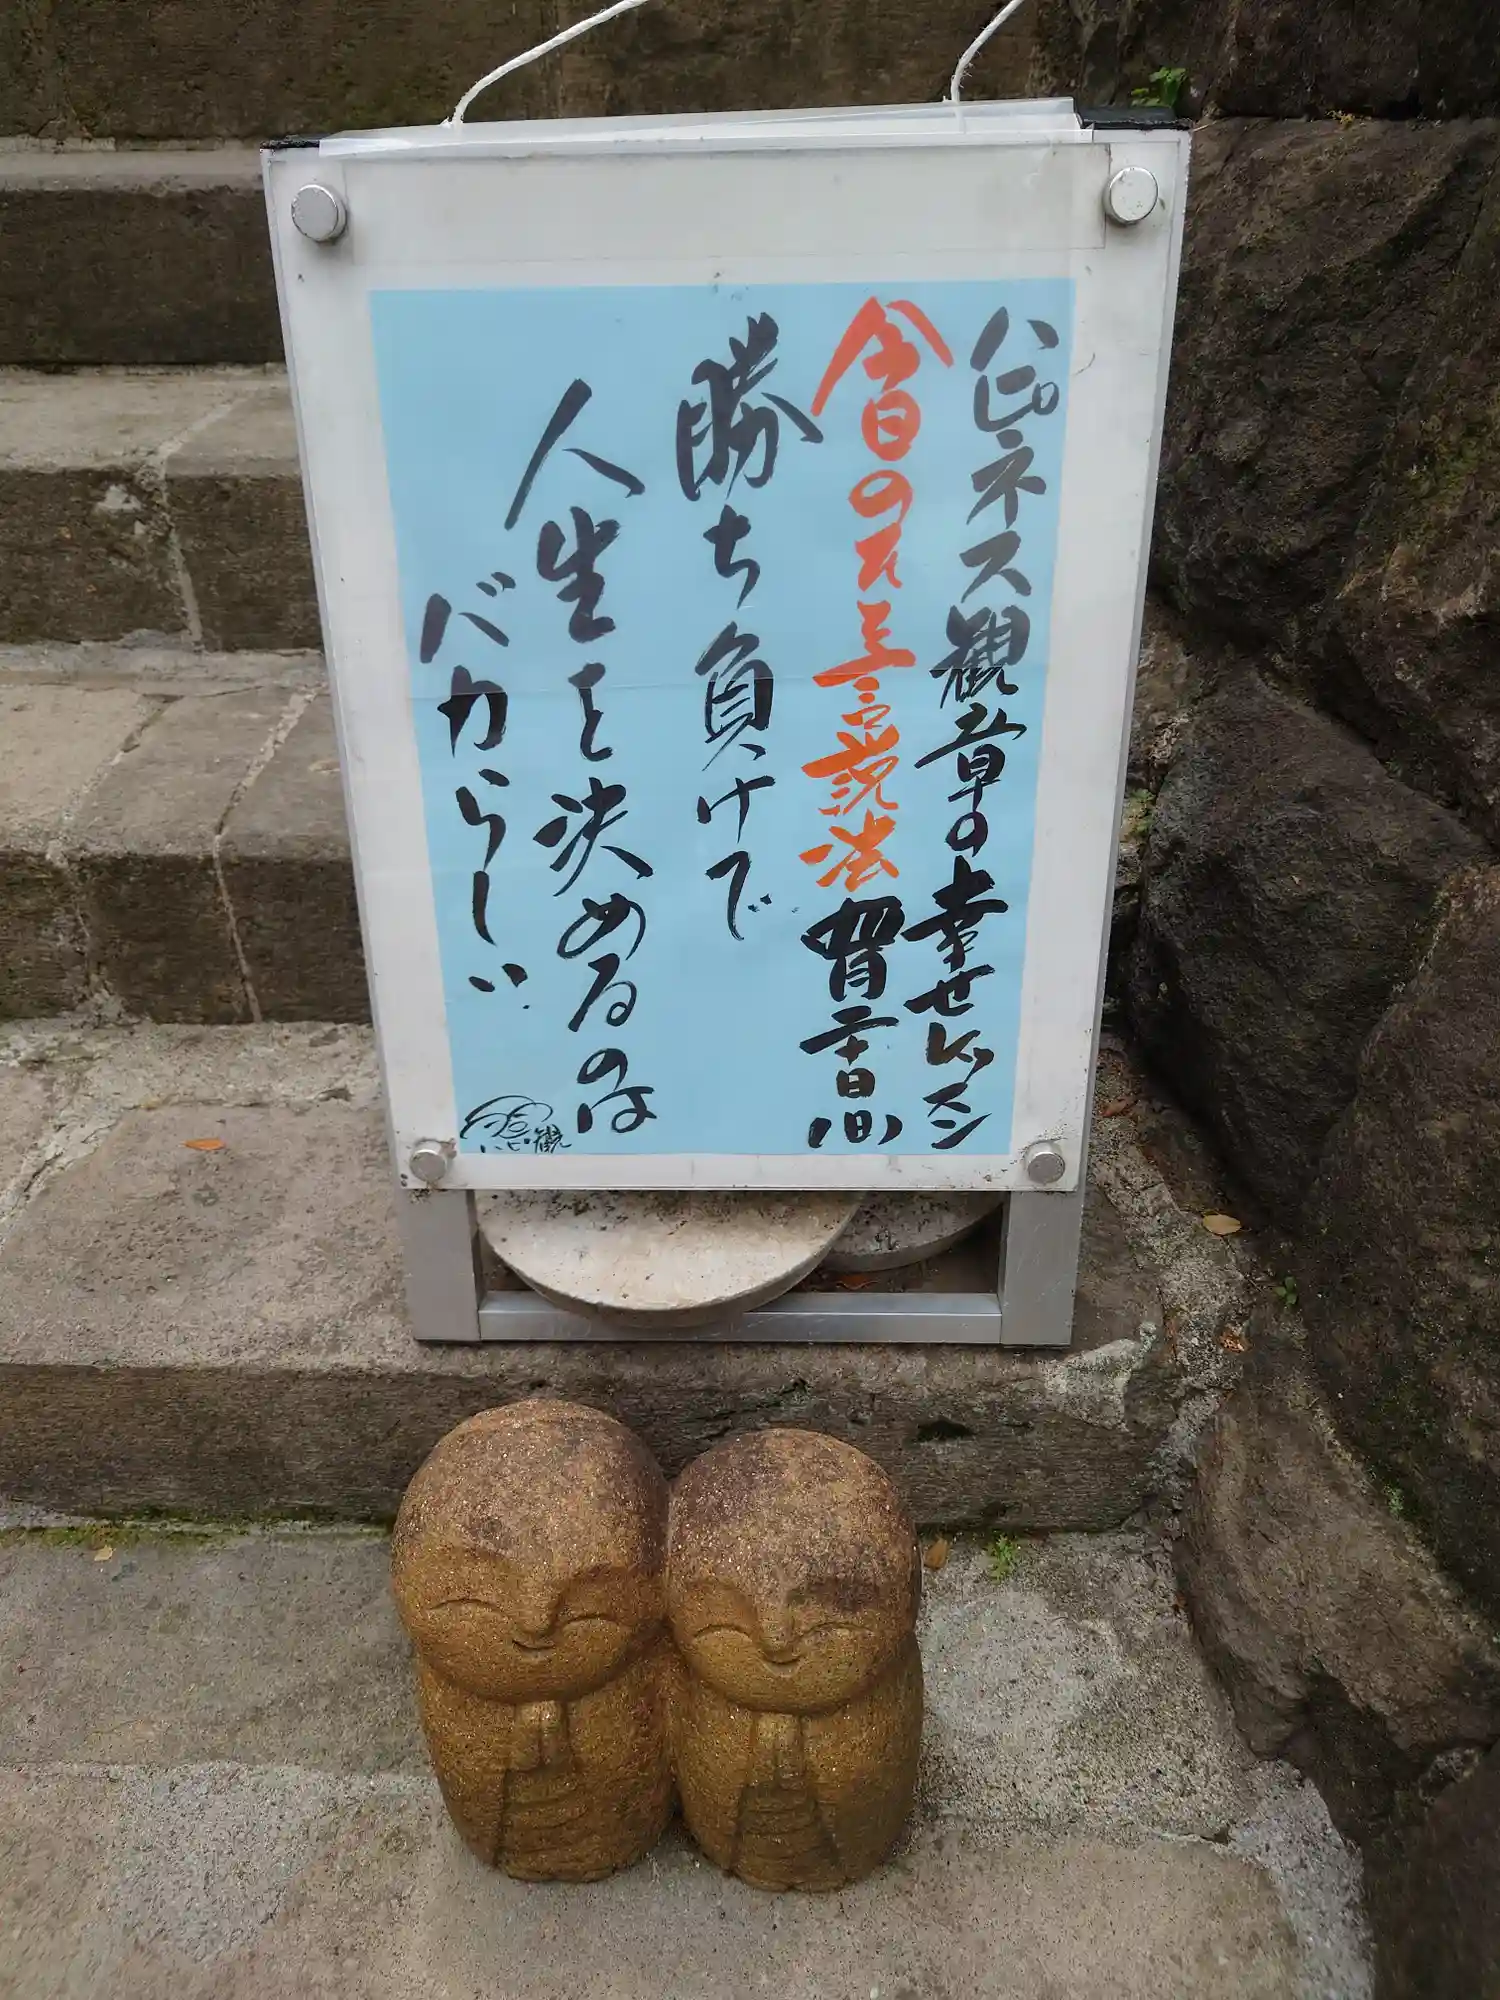 ハピネス観章の幸せレッスン
今日の天言説法 習二十日間
勝ち負けで
人生を決めるのは
バカらしい
ハピ観